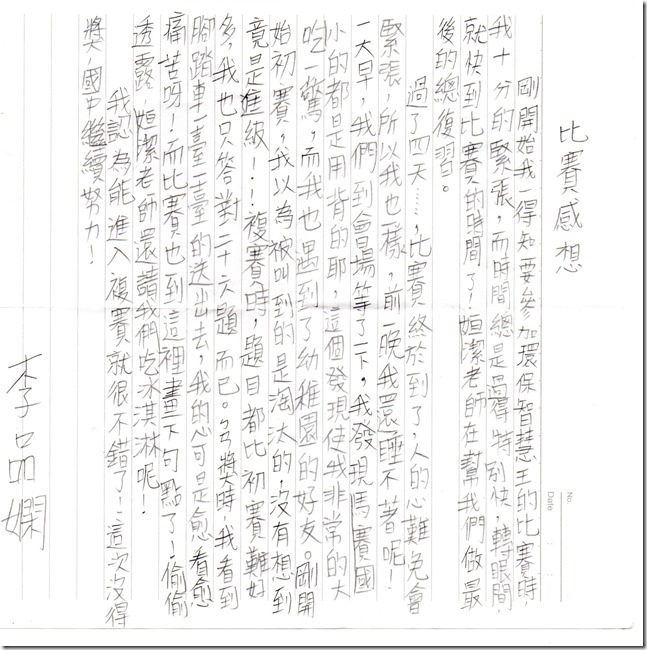 No.
Date
比賽感想
剛開始我一得知要參加環保智慧王的比賽時,
我十分的緊張,而時間總是過得特別快,轉眼間,
就快到比賽的時間了!姮潔老師在幫我們做最
後的總復習。
過了四天……,比賽終於到了,人的心難免會
緊張,所以我也樣,前一晚我還睡不著呢!
一大早,我們到會場等了一下,我發現馬賽國
小的都是用背的耶,這個發現使我非常的大
吃一驚,而我也遇到了幼稚園的好友。剛開
始初賽,我以為被叫到的是淘汰的,沒有想到
竟是進級!!複賽時,題目都比初賽難好
多,我也只答對二十六題而已。獎時,我看到
腳踏車一臺一臺的送出去,我的心可是愈看愈
痛苦呀!而比賽也到這裡畫下句點了!偷偷
透露,姮潔老師還請我們吃冰淇淋呢!
我認為能進入複賽就很不錯了!這次沒得
獎,國中繼續努力!
李品嫻